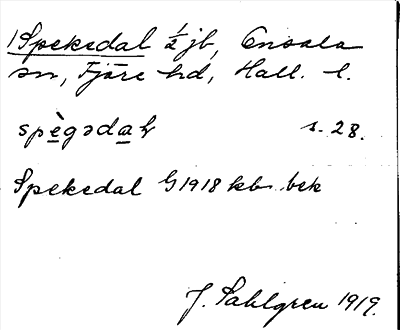 1 Spekedal ½ jb, Onsala
sn, Fjäre hd, Hall. l.
spègədaḷ s. 28.
Spekedal G 1918 kb bek
J. Sahlgren 1919.